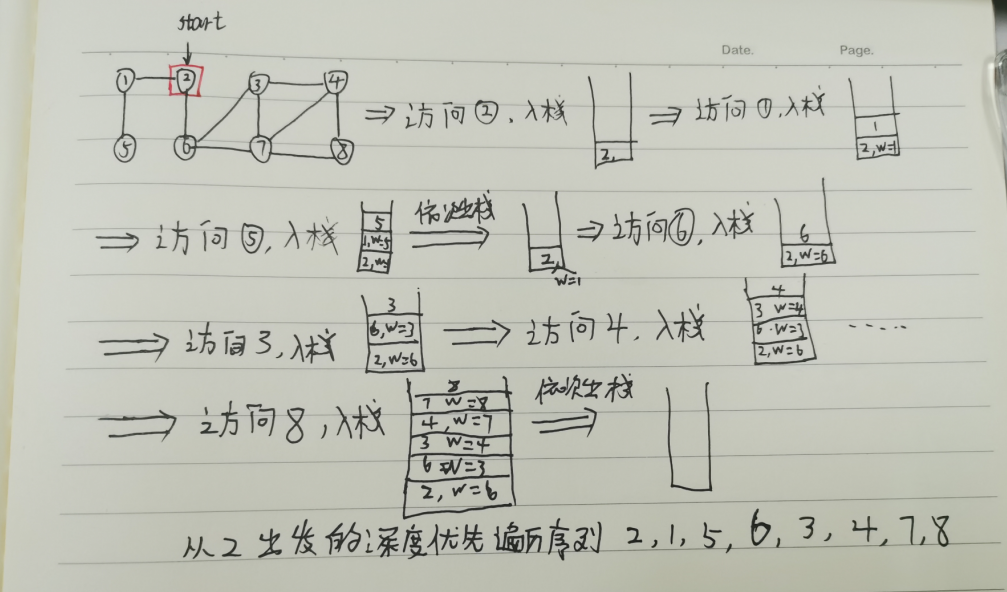 start
Date. Page.
1 2 3 4
5 6 7 8
⇒ 访问②,入栈 2, ⇒ 访问①,入栈 1
2,w=1
⇒ 访问⑤,入栈 5 依次出栈 2, ⇒ 访问⑥,入栈 6
1,w=5 w=1 2,w=6
2,w=
⇒ 访问3,入栈 3 ⇒ 访问4,入栈 4
6,w=3 3 w=4 ·····
2,w=6 6·w=3
2,w=6
⇒ 访问8,入栈 8 依次出栈 ⇒
7 w=8
4,w=7
3 w=4
6 w=3
2,w=6
从2出发的深度优先遍历序列 2,1,5,6,3,4,7,8